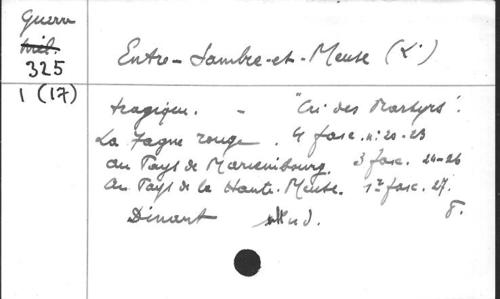 Guerre
325
1 (17)
Entre-Sambre-et-Meuse (L')
tragique. - "Cri des Martyrs".
La Fagne rouge. 4 fasc. n: 20-23
Au Pays de Mariembourg. 3 fasc. 24-26
Au Pays de la Haute-Meuse. 1 fasc. 27.
Dinant s.d. 8.